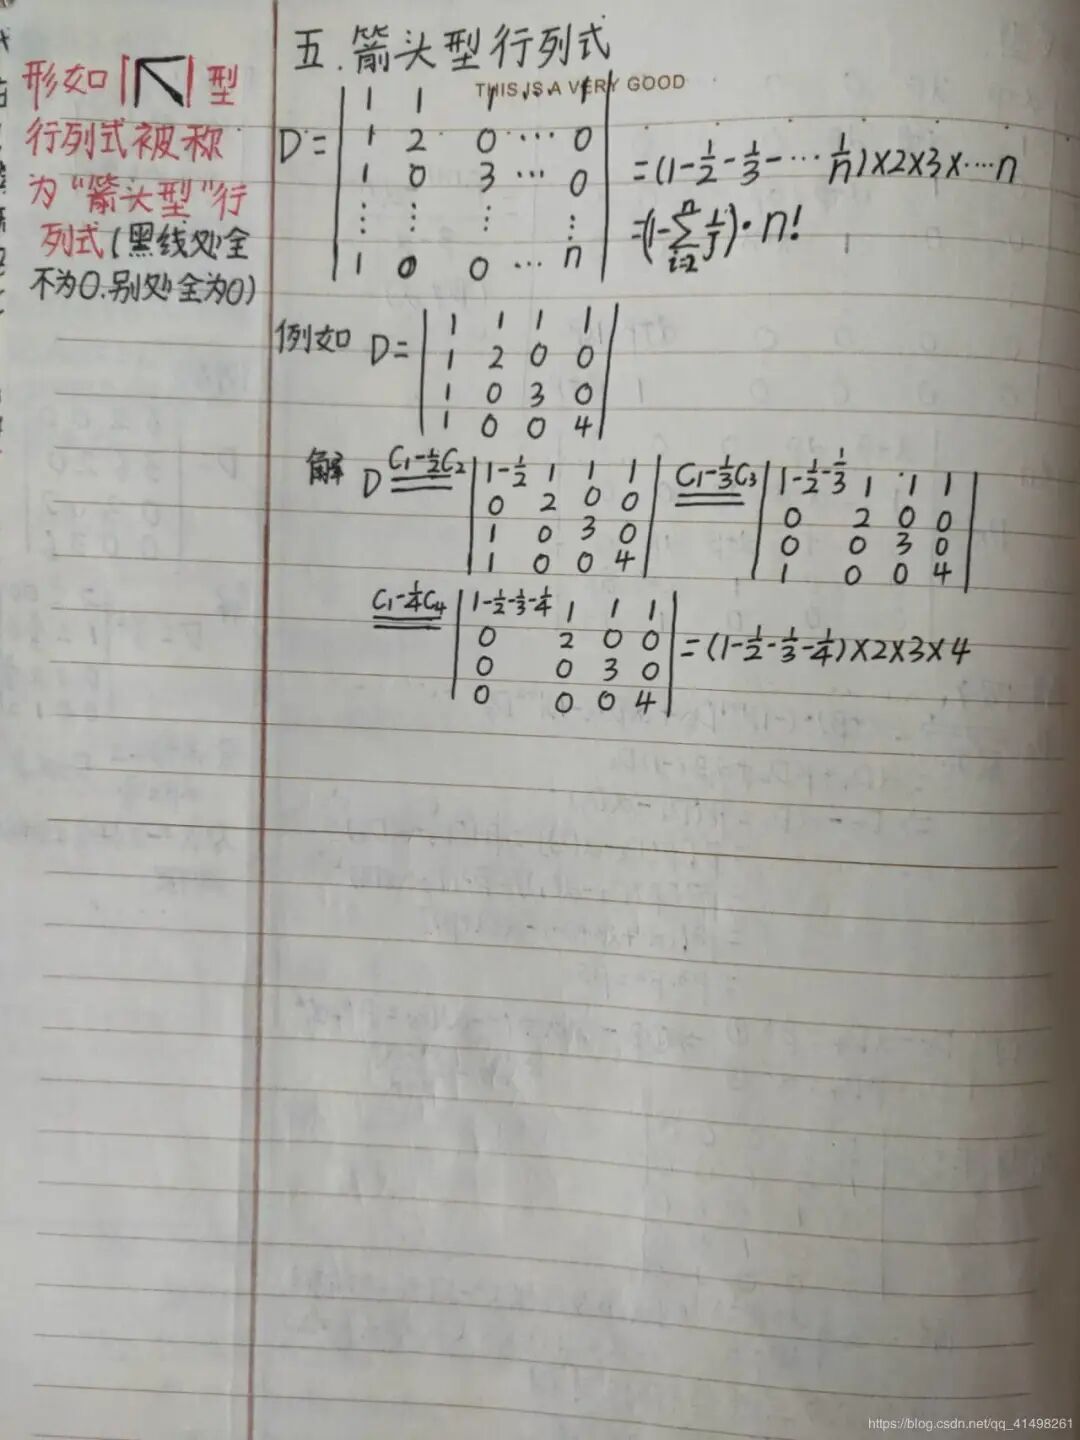 五.箭头型行列式
THIS IS A VERY GOOD
形如| |型
行列式被称
为“箭头型”行
列式(黑线处全
不为0.别处全为0)
D=
1 1 1 … 1
1 2 0 … 0
1 0 3 … 0
⋮ ⋮ ⋮ ⋮
1 0 0 … n
=(1-1/2-1/3-…1/n)×2×3×…·n
=(1-∑_{i=2}^{n} 1/j)·n!
例如 D=
1 1 1 1
1 2 0 0
1 0 3 0
1 0 0 4
解 D C₁-1/2C₂
1-1/2 1 1 1
0 2 0 0
1 0 3 0
1 0 0 4
C₁-1/3C₃
1-1/2-1/3 1 1 1
0 2 0 0
0 0 3 0
1 0 0 4
C₁-1/4C₄
1-1/2-1/3-1/4 1 1 1
0 2 0 0
0 0 3 0
0 0 0 4
=(1-1/2-1/3-1/4)×2×3×4
https://blog.csdn.net/qq_41498261